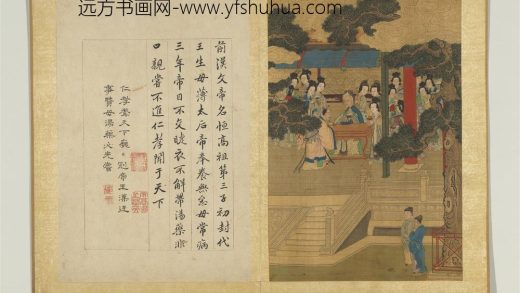 远方书画网-www.yfshuhua.com
前漢文帝名恒高祖第三子初封代
王生母薄太后帝奉養無怠母常病
三年帝目不交睫衣不解帶湯藥非
口親嘗不進仁孝聞于天下
仁孝臨天下巍〻冠帝王漢廷
事賢母湯藥必先嘗